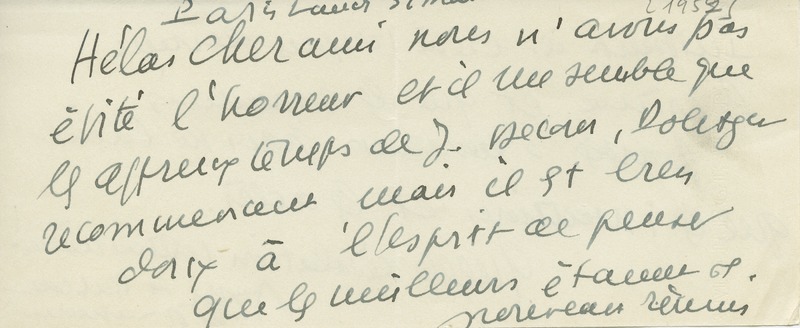 Paris Lundi [1957]
Hélas cher ami nous n'avons pas
évité l'horreur et il me semble que
les affreux temps de J. Decour, Politzer
recommencent mais il est bien
doux à l'esprit de penser
que les meilleurs étaient
nouveau réunis